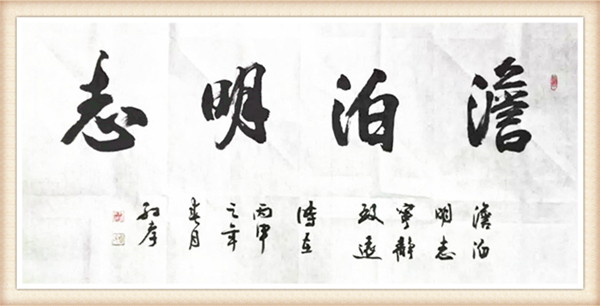 澹泊明志
澹泊
明志
寧靜
致遠
時在
丙申
之年
春月